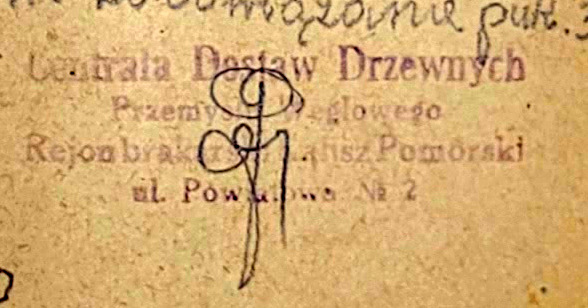 zobowiązanie pkt.
Centrala Dostaw Drzewnych
Przemysłu Węglowego
Rejon brakarski Kalisz Pomorski
ul. Powiatowa № 2